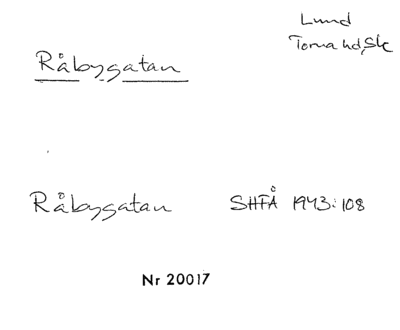 Lund
Torna hd, Sk
Råbygatan
Råbygatan SHFÅ 1943:108
Nr 20017